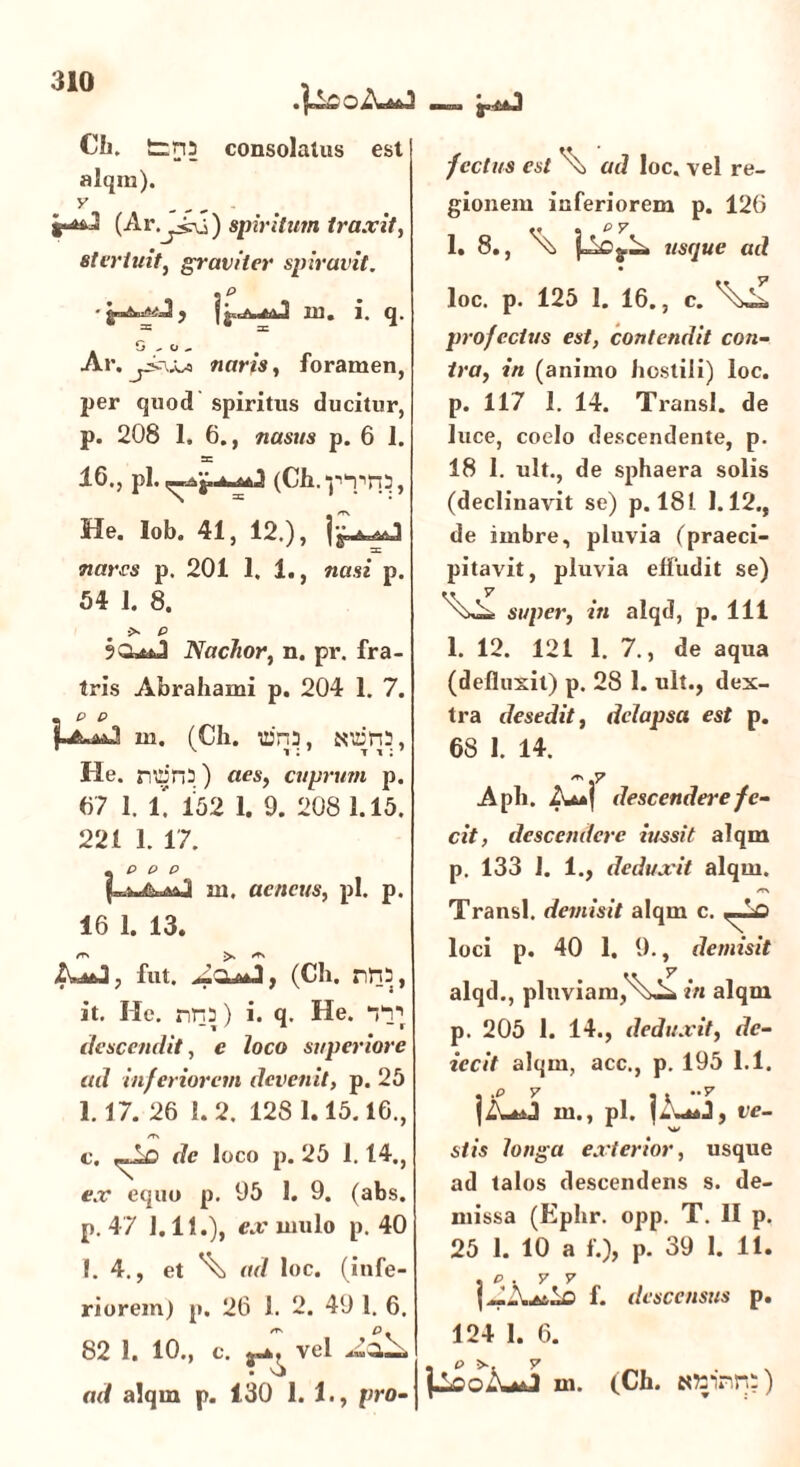 310
ܢܚܪ — ܢܚܬܘܡܐ.
Ch. נחם consolatus est
alqm).
ܢܚܪ (Ar. نخر) spiritum traxit,
stertuit, graviter spiravit.
ܢܚܝܪ, ܢܚܝܪܐ m. i. q.
Ar. منخر naris, foramen,
per quod spiritus ducitur,
p. 208 l. 6., nasus p. 6 l.
16., pl. ܢܚܝܪܝܢ (Ch. נחירין,
He. Iob. 41, 12.), ܢܚܝܪܐ
nares p. 201 l. 1., nasi p.
54 l. 8.
ܢܚܘܪ Nachor, n. pr. fra-
tris Abrahami p. 204 l. 7.
ܢܚܫܐ m. (Ch. נְחָשׁ, נְחָשָׁא,
He. נחשת) aes, cuprum p.
67 l. 1. 152 l. 9. 208 l. 15.
221 l. 17.
ܢܚܫܝܐ m. aeneus, pl. p.
16 l. 13.
ܢܚܬ, fut. ܢܚܘܬ, (Ch. נחת,
it. He. נחת) i. q. He. ירד
descendit, e loco superiore
ad inferiorem devenit, p. 25
l. 17. 26 l. 2. 128 l. 15. 16.,
c. ܡܢ de loco p. 25 l. 14.,
ex equo p. 95 l. 9. (abs.
p. 47 l. 11.), ex mulo p. 40
l. 4., et ܠ ad loc. (infe-
riorem) p. 26 l. 2. 49 l. 6.
82 l. 10., c. ܨܝܕ vel ܠܘܬ
ad alqm p. 130 l. 1., pro-
fectus est ܠ ad loc. vel re-
gionem inferiorem p. 126
l. 8., ܥܕܡܐ ܠ usque ad
loc. p. 125 l. 16., c. ܥܠ
profectus est, contendit con-
tra, in (animo hostili) loc.
p. 117 l. 14. Transl. de
luce, coelo descendente, p.
18 l. ult., de sphaera solis
(declinavit se) p. 181 l. 12.,
de imbre, pluvia (praeci-
pitavit, pluvia effudit se)
ܥܠ super, in alqd, p. 111
l. 12. 121 l. 7., de aqua
(defluxit) p. 28 l. ult., dex-
tra desedit, delapsa est p.
68 l. 14.
Aph. ܐܚܬ descendere fe-
cit, descendere iussit alqm
p. 133 l. 1., deduxit alqm.
Transl. demisit alqm c. ܡܢ
loci p. 40 l. 9., demisit
alqd., pluviam, ܥܠ in alqm
p. 205 l. 14., deduxit, de-
iecit alqm, acc., p. 195 l. 1.
ܢܚܬܐ m., pl. ܢܚ̈ܬܐ, ve-
stis longa exterior, usque
ad talos descendens s. de-
missa (Ephr. opp. T. II p.
25 l. 10 a f.), p. 39 l. 11.
ܡܚܬܬܐ f. descensus p.
124 l. 6.
ܢܚܬܘܡܐ m. (Ch. נחתומא)